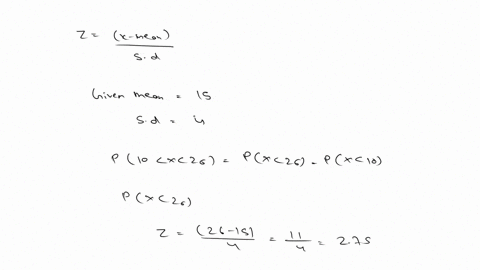 Z = (x-mean) / s.d
Given mean = 15
s.d = 4
P(10 < x < 26) = P(x < 26) - P(x < 10)
P(x < 26)
Z = (26-15) / 4 = 11 / 4 = 2.75